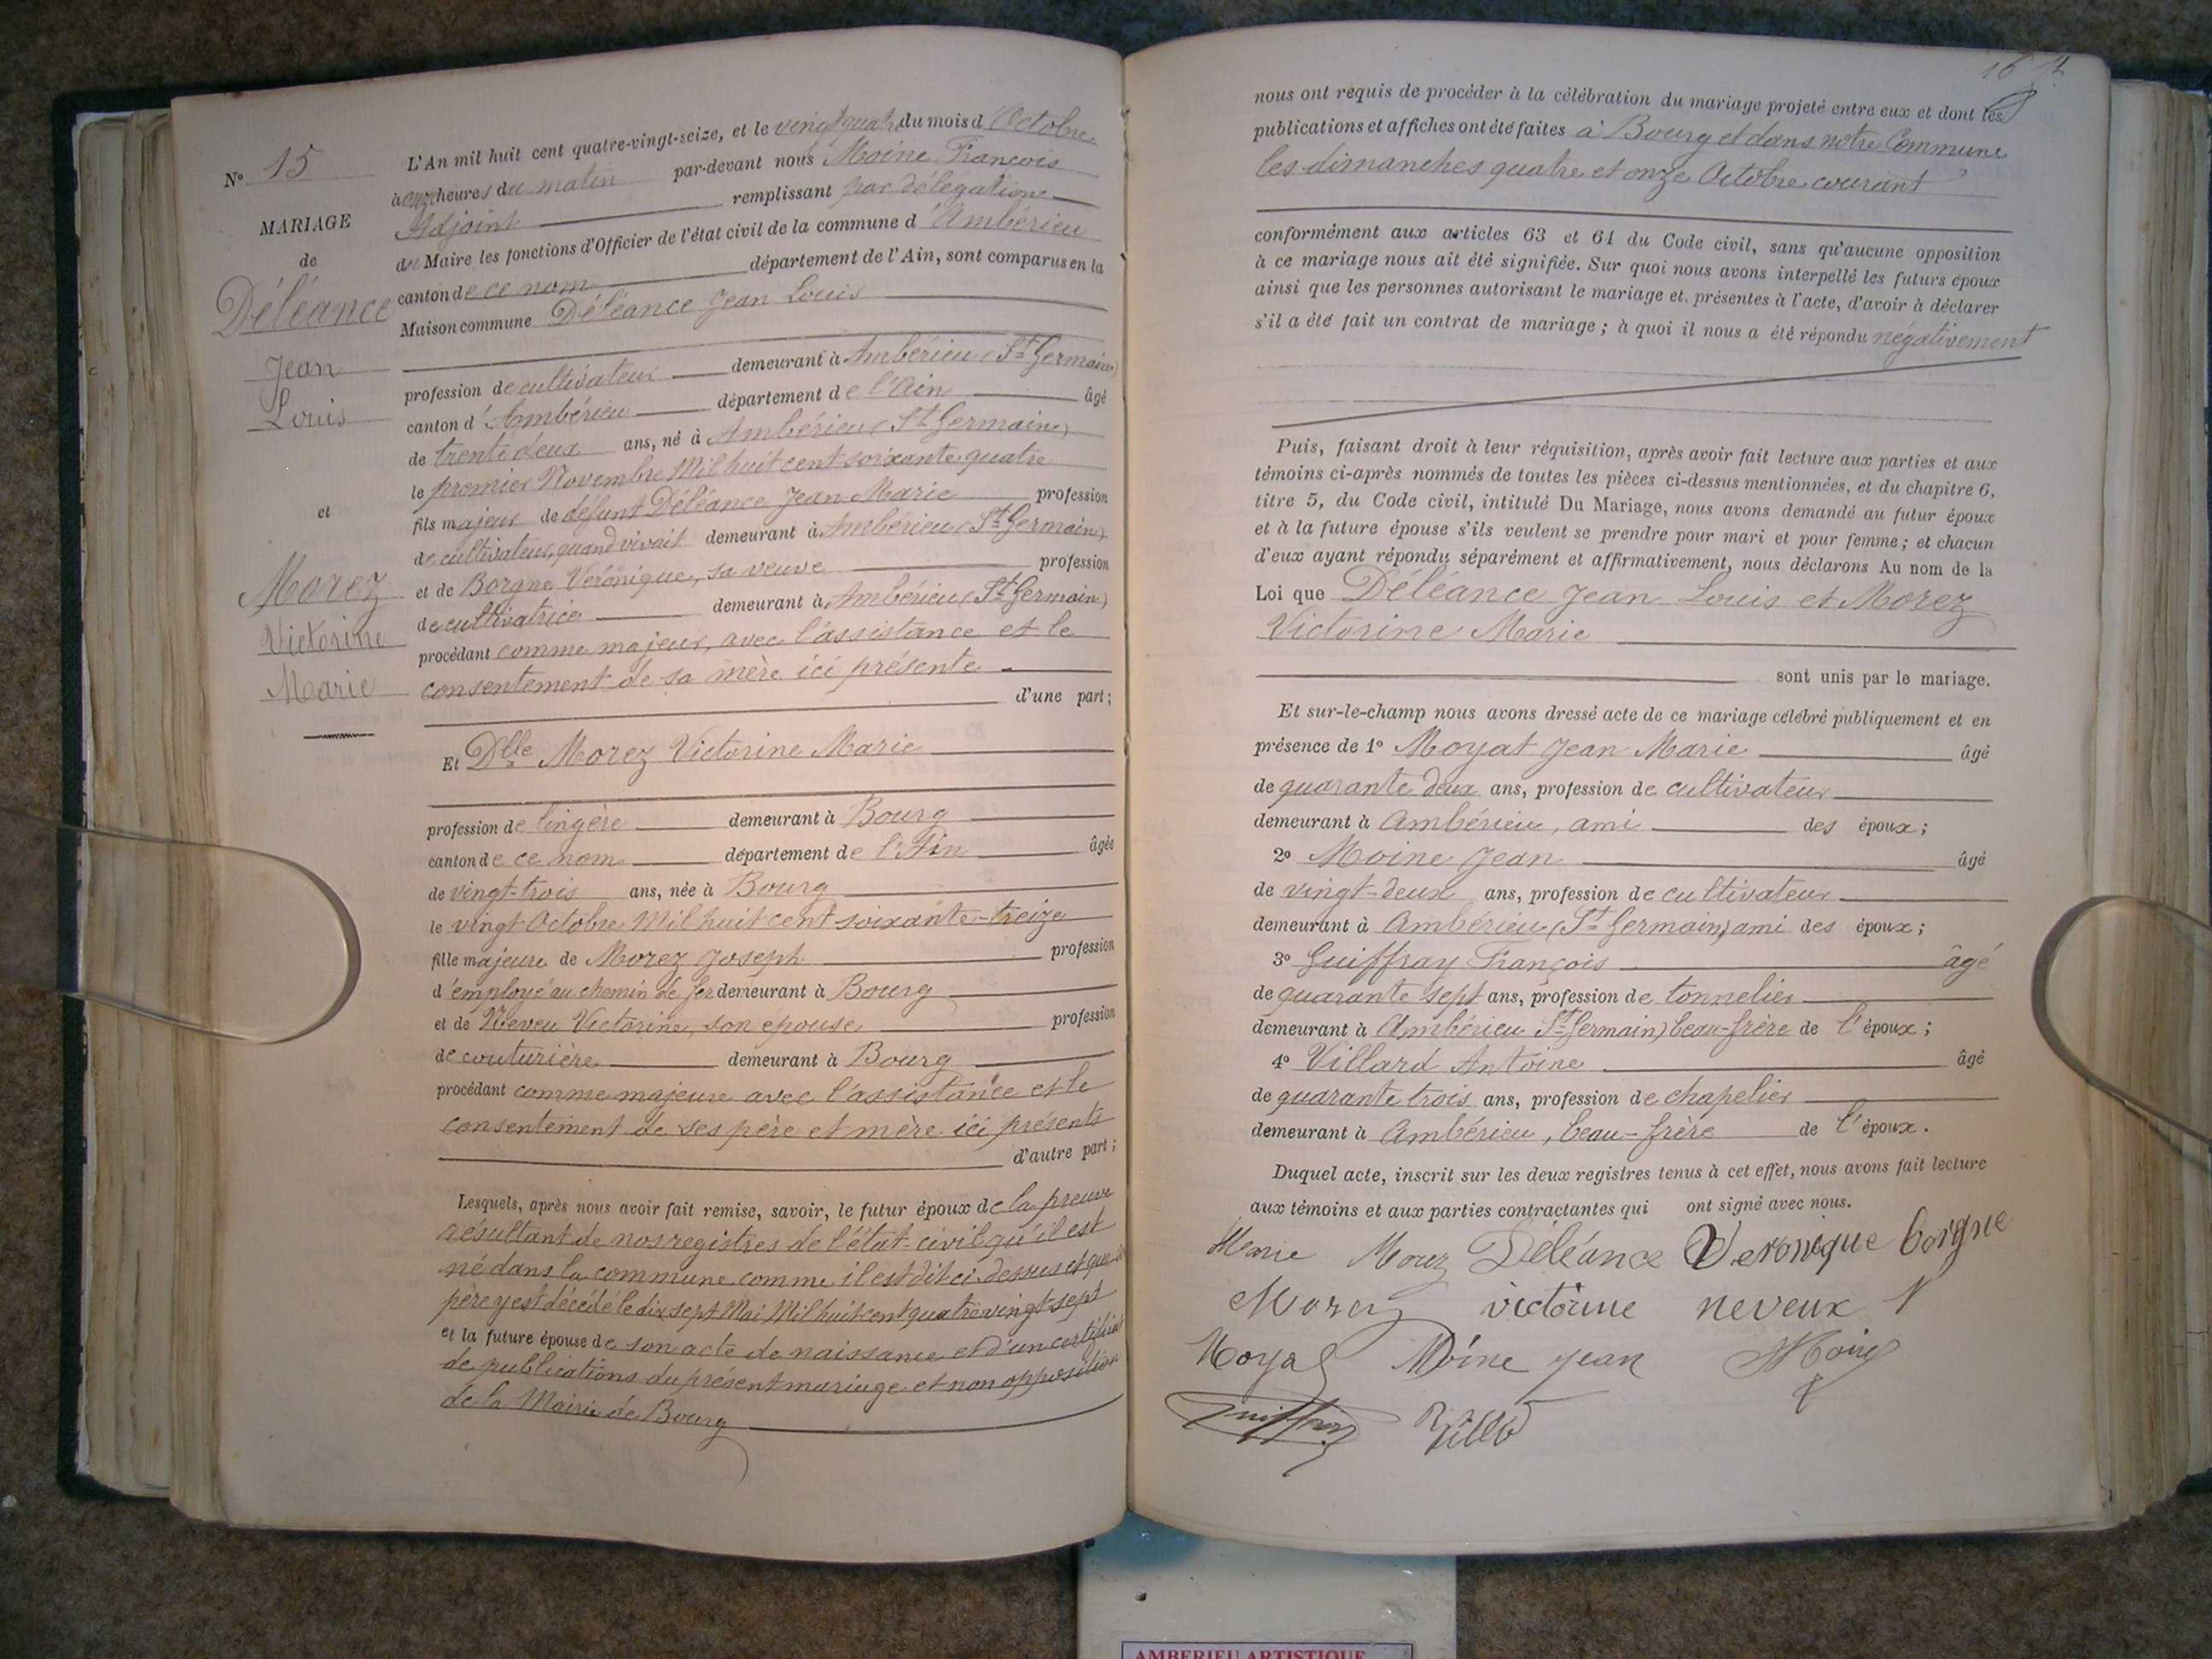 N° 15
MARIAGE
de
Déléance
Jean
Louis
et
Morez
Victorine
Marie
L'An mil huit cent quatre-vingt-seize, et le vingt quatre du mois d'Octobre
à onze heures du matin par-devant nous Moine François
Adjoint remplissant par délégation
du Maire les fonctions d'Officier de l'état civil de la commune d'Ambérieu
canton de ce nom département de l'Ain, sont comparus en la
Maison commune Déléance Jean Louis
profession de cultivateur demeurant à Ambérieu (St Germain)
canton d'Ambérieu département de l'Ain âgé
de trente deux ans, né à Ambérieu (St Germain)
le premier Novembre Mil huit cent soixante quatre
fils majeur de défunt Déléance Jean Marie profession
de cultivateur, quand vivait demeurant à Ambérieu (St Germain)
et de Borgne Véronique, sa veuve profession
de cultivatrice demeurant à Ambérieu (St Germain)
procédant comme majeur, avec l'assistance et le
consentement de sa mère ici présente
d'une part;
Et Dlle Morez Victorine Marie
profession de lingère demeurant à Bourg
canton de ce nom département de l'Ain âgée
de vingt-trois ans, née à Bourg
le vingt Octobre Mil huit cent soixante-treize
fille majeure de Morez Joseph profession
d'employé au chemin de fer demeurant à Bourg
et de Neveu Victorine, son épouse profession
de couturière demeurant à Bourg
procédant comme majeure avec l'assistance et le
consentement de ses père et mère ici présents
d'autre part;
Lesquels, après nous avoir fait remise, savoir, le futur époux de la preuve
résultant de nos registres de l'état-civil qu'il est
né dans la commune comme il est dit ci-dessus et que le
père y est décédé le dix sept Mai Mil huit cent quatre vingt-sept
et la future épouse de son acte de naissance et d'un certificat
de publications du présent mariage et non opposition
de la Mairie de Bourg
16
nous ont requis de procéder à la célébration du mariage projeté entre eux et dont les
publications et affiches ont été faites à Bourg et dans notre Commune
les dimanches quatre et onze Octobre courant
conformément aux articles 63 et 64 du Code civil, sans qu'aucune opposition
à ce mariage nous ait été signifiée. Sur quoi nous avons interpellé les futurs époux
ainsi que les personnes autorisant le mariage et présentes à l'acte, d'avoir à déclarer
s'il a été fait un contrat de mariage; à quoi il nous a été répondu négativement
Puis, faisant droit à leur réquisition, après avoir fait lecture aux parties et aux
témoins ci-après nommés de toutes les pièces ci-dessus mentionnées, et du chapitre 6,
titre 5, du Code civil, intitulé Du Mariage, nous avons demandé au futur époux
et à la future épouse s'ils veulent se prendre pour mari et pour femme; et chacun
d'eux ayant répondu séparément et affirmativement, nous déclarons Au nom de la
Loi que Déléance Jean Louis et Morez
Victorine Marie
sont unis par le mariage.
Et sur-le-champ nous avons dressé acte de ce mariage célébré publiquement et en
présence de 1° Moyat Jean Marie âgé
de quarante deux ans, profession de cultivateur
demeurant à Ambérieu, ami des époux;
2° Moine Jean âgé
de vingt-deux ans, profession de cultivateur
demeurant à Ambérieu (St Germain) ami des époux;
3° Guiffray François âgé
de quarante sept ans, profession de tonnelier
demeurant à Ambérieu St Germain) beau-frère de l'époux;
4° Villard Antoine âgé
de quarante trois ans, profession de chapelier
demeurant à Ambérieu, beau-frère de l'époux.
Duquel acte, inscrit sur les deux registres tenus à cet effet, nous avons fait lecture
aux témoins et aux parties contractantes qui ont signé avec nous.
Marie Morez Déléance Veronique borgne
Morez victorine neveux
Moyat Moine Jean Moine
Guiffray
AMBERIEU ARTISTIQUE